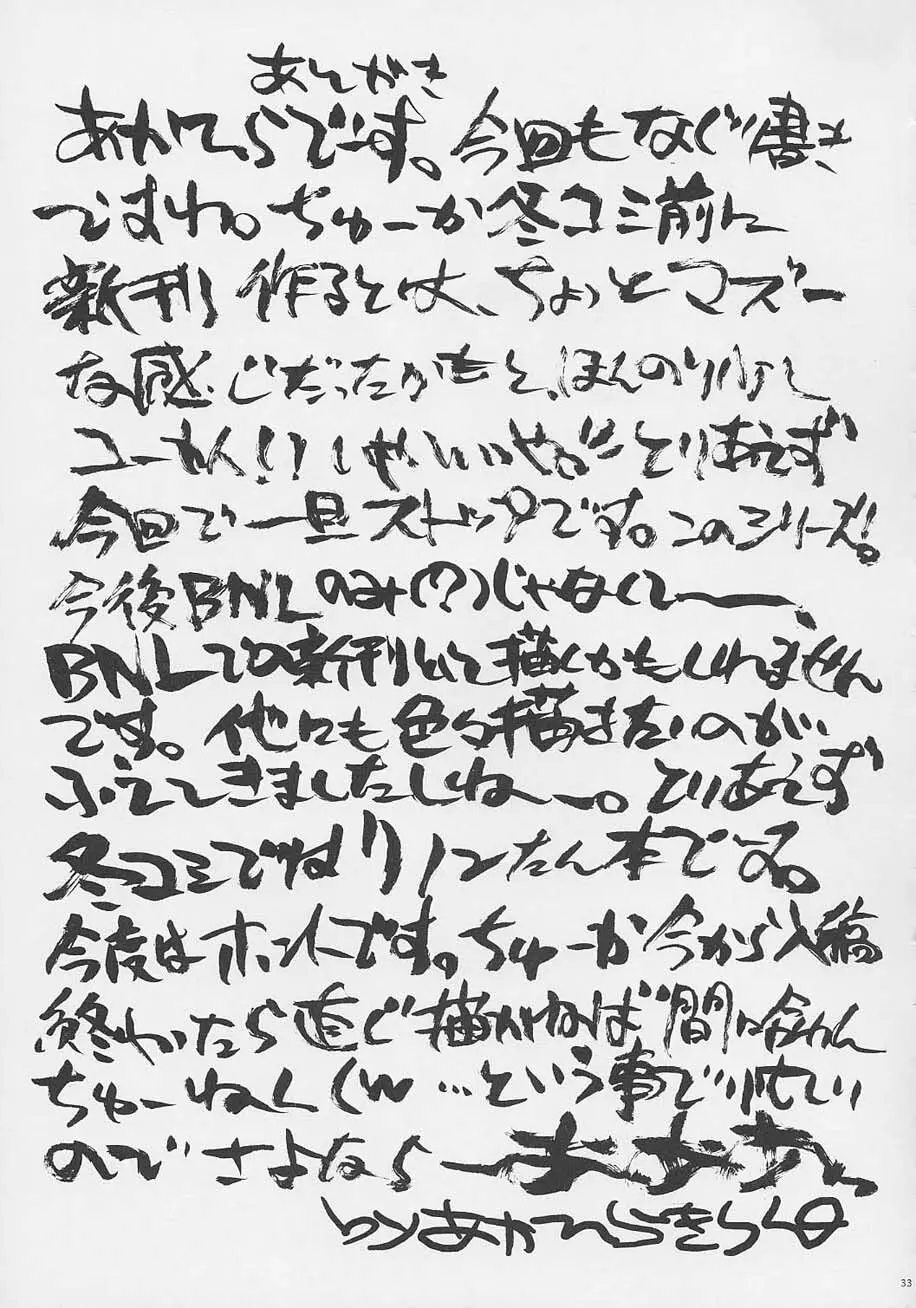 あとがき
あかてらでーす。今回もなぐり書き
ですね。ちゅーか冬コミ前に
新刊作るとは、ちょっとマズー
な感じだったかもと、ほんのり
今回で一旦ストップです。このシリーズ!。
今後BNLのみ(?)じゃなくてー、
BNLでの新刊として描くかもしれません
です。他にも色々描きたいのが
ふえてきましたしねー。とりあえず
冬コミではリノンたん本でーす。
今度はホントです。ちゅーか今から入稿
終わったら直ぐ描かねば間に合わん
ちゅーねん(w …という事で忙しい
のでさよなら
33